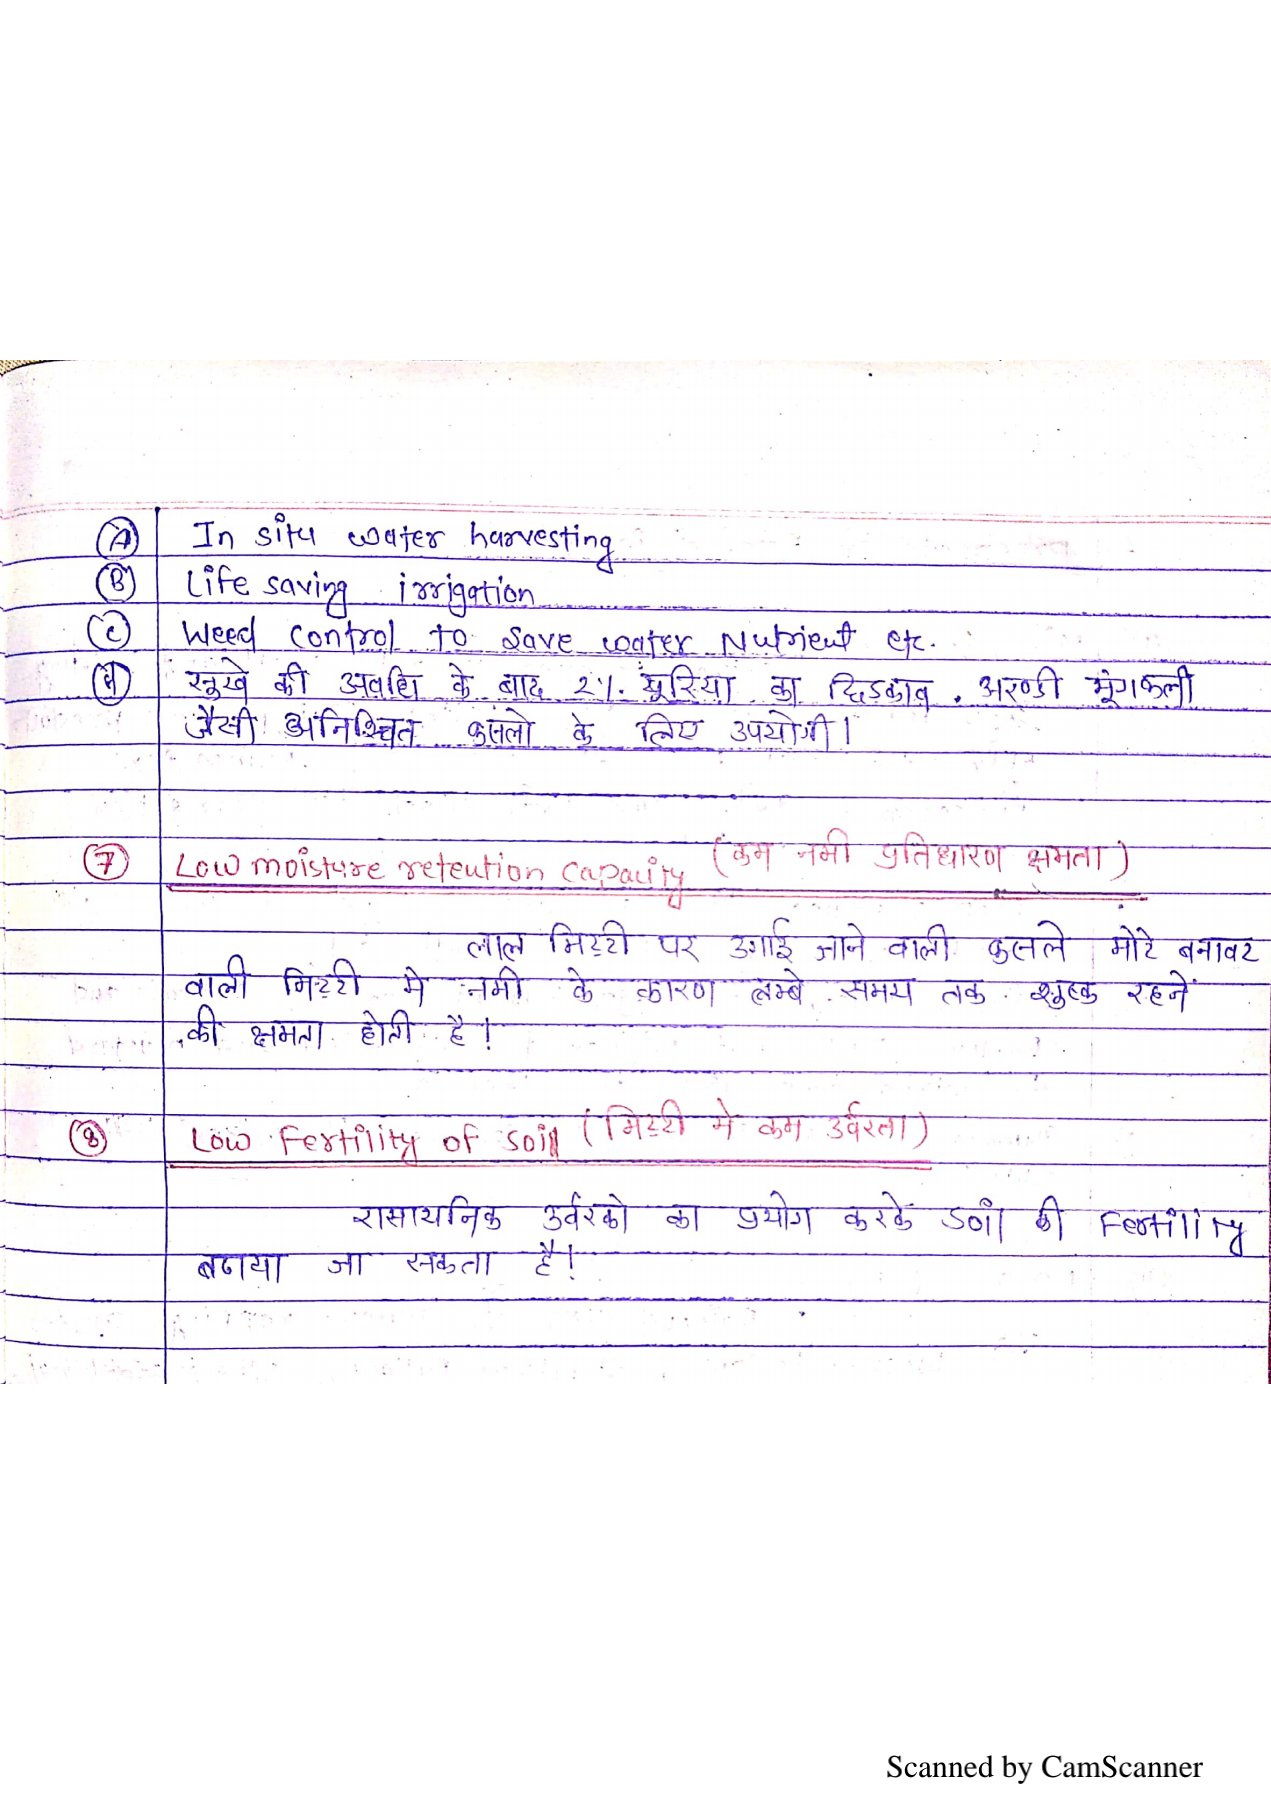 (A) In situ water harvesting
(B) Life saving irrigation
(C) Weed control to save water Nutrient etc.
सूखे की अवधि के बाद 2%. यूरिया का छिडकाव . अरण्डी मूंगफली
जैसी अनिश्चित फसलो के लिए उपयोगी।
(7) Low moisture retention capacity (कम नमी प्रतिधारण क्षमता)
लाल मिट्टी पर उगाई जाने वाली फसले मोटे बनावट
वाली मिट्टी मे नमी के कारण लम्बे समय तक शुष्क रहने
की क्षमता होती है।
(8) Low Fertility of soil (मिट्टी मे कम उर्वरता)
रासायनिक उर्वरको का प्रयोग करके soil की Fertility
बढाया जा सकता है।
Scanned by CamScanner